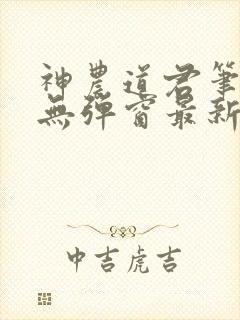 神農道君筆
無彈窗最新
中吉虎吉